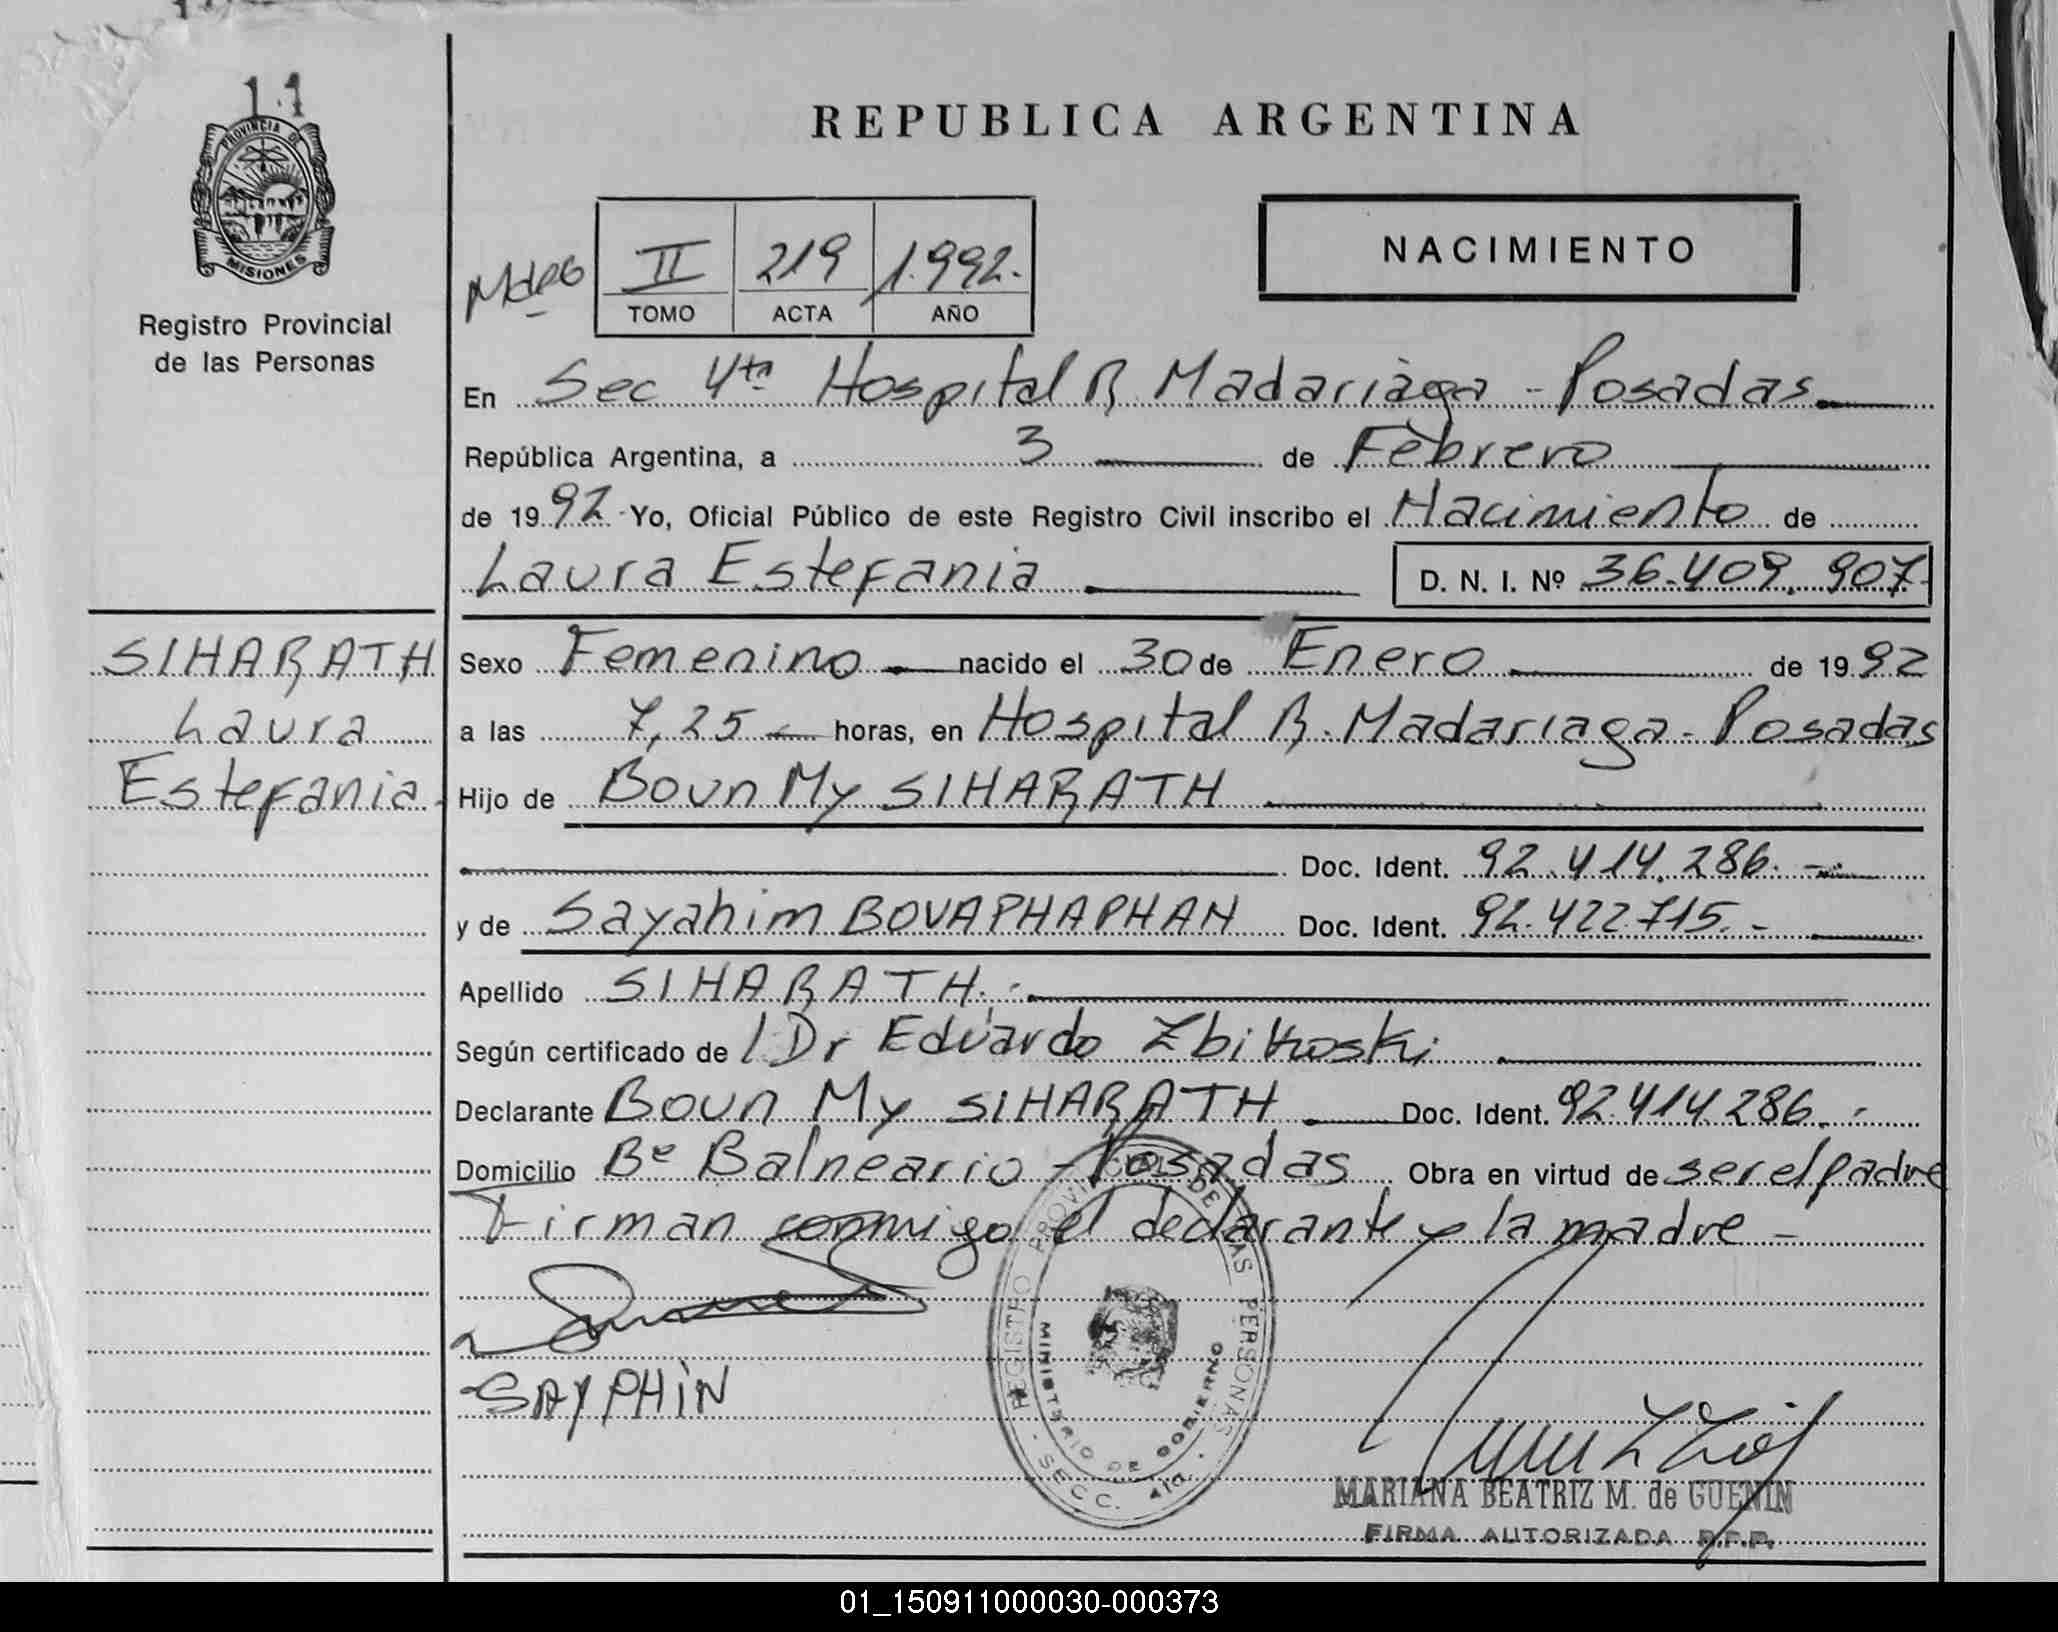 11
PROVINCIA DE
MISIONES
Registro Provincial
de las Personas
SIHARATH
Laura
Estefania.
REPUBLICA ARGENTINA
II 219 1.992.
TOMO ACTA AÑO
NACIMIENTO
En Sec 4ta Hospital R Madariaga - Posadas
República Argentina, a 3 de Febrero
de 1992 - Yo, Oficial Público de este Registro Civil inscribo el Nacimiento de
Laura Estefania D. N. I. Nº 36.409.907-
Sexo Femenino nacido el 30 de Enero de 1992
a las 7,25 horas, en Hospital R. Madariaga - Posadas
Hijo de Boun My SIHARATH
Doc. Ident. 92.414.286.-
y de Sayahim BOUAPHAPHAN Doc. Ident. 92.422.715.-
Apellido SIHARATH.-
Según certificado de l Dr Eduardo Zbikoski
Declarante Boun My SIHARATH Doc. Ident. 92.414.286.-
Domicilio Bº Balneario - Posadas Obra en virtud de ser el padre
Firman conmigo el declarante y la madre -
SAYPHIN
REGISTRO PROVINCIAL DE LAS PERSONAS
MINISTERIO DE GOBIERNO
SECC. 4ta
MARIANA BEATRIZ M. de GUENIN
FIRMA AUTORIZADA R.P.P.
01_150911000030-000373